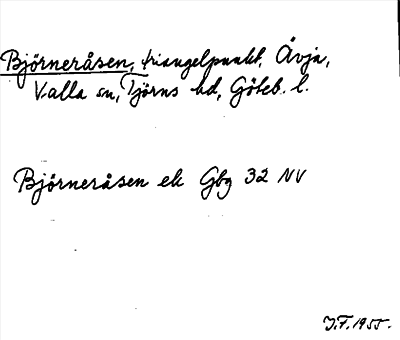 Björneråsen, triangelpunkt, Åvja,
Valla sn, Tjörns hd, Göteb. l.
Björneråsen ek Gbg 32 NV
J.F. 1955.